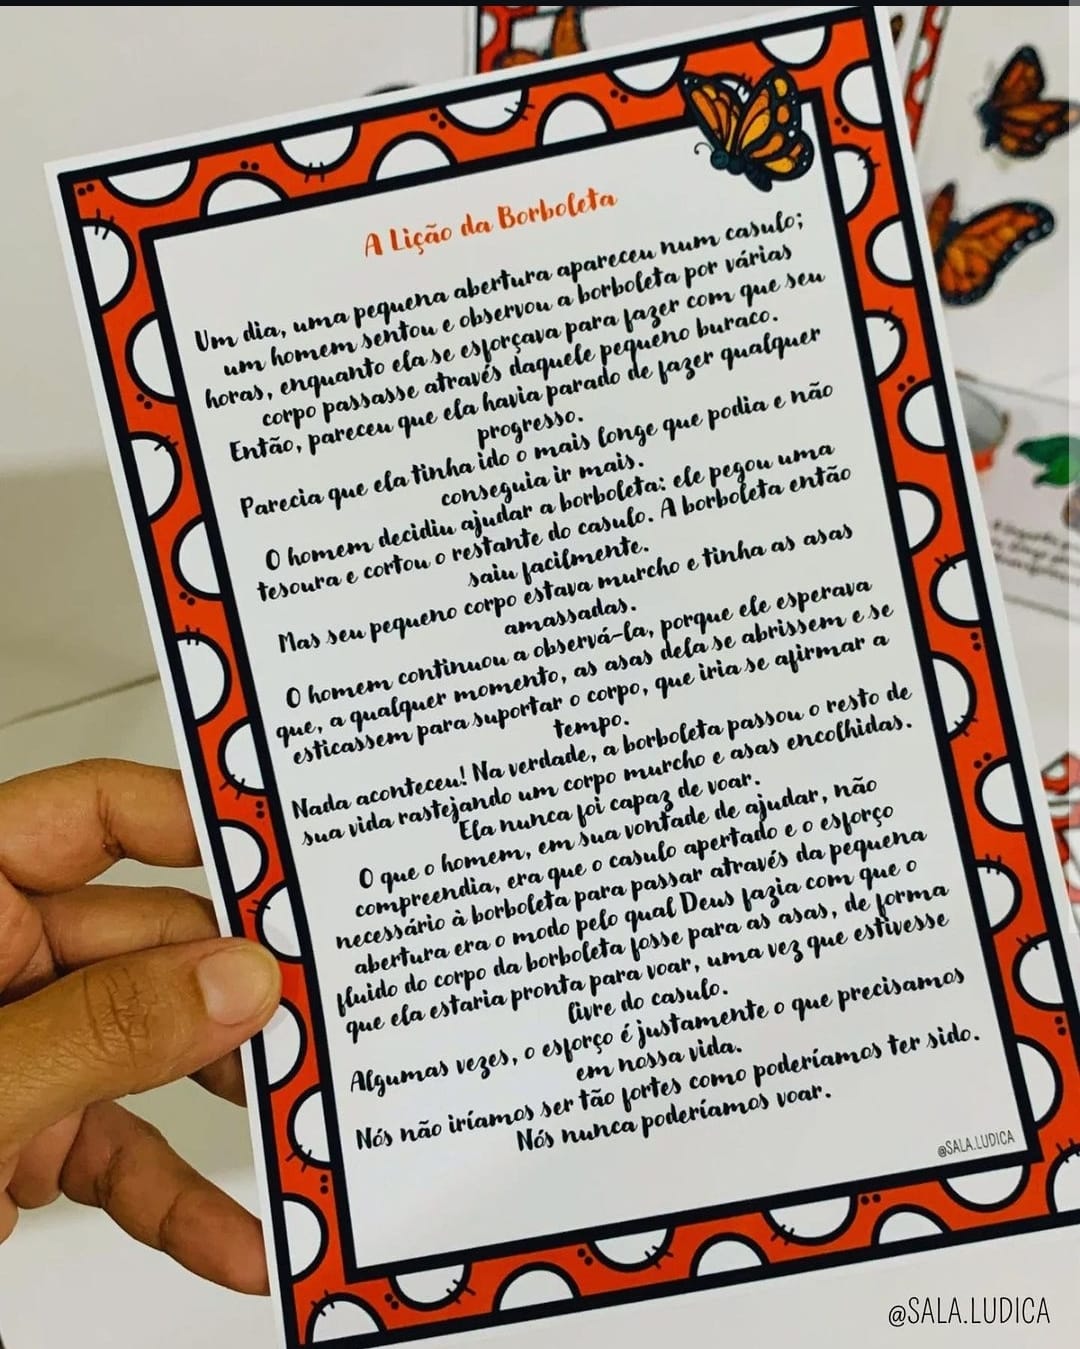 A Lição da Borboleta
Um dia, uma pequena abertura apareceu num casulo;
um homem sentou e observou a borboleta por várias
horas, enquanto ela se esforçava para fazer com que seu
corpo passasse através daquele pequeno buraco.
Então, pareceu que ela havia parado de fazer qualquer
progresso.
Parecia que ela tinha ido o mais longe que podia e não
conseguia ir mais.
O homem decidiu ajudar a borboleta: ele pegou uma
tesoura e cortou o restante do casulo. A borboleta então
saiu facilmente.
Mas seu pequeno corpo estava murcho e tinha as asas
amassadas.
O homem continuou a observá-la, porque ele esperava
que, a qualquer momento, as asas dela se abrissem e se
esticassem para suportar o corpo, que iria se afirmar a
tempo.
Nada aconteceu! Na verdade, a borboleta passou o resto de
sua vida rastejando um corpo murcho e asas encolhidas.
Ela nunca foi capaz de voar.
O que o homem, em sua vontade de ajudar, não
compreendia, era que o casulo apertado e o esforço
necessário à borboleta para passar através da pequena
abertura era o modo pelo qual Deus fazia com que o
fluido do corpo da borboleta fosse para as asas, de forma
que ela estaria pronta para voar, uma vez que estivesse
livre do casulo.
Algumas vezes, o esforço é justamente o que precisamos
em nossa vida.
Nós não iríamos ser tão fortes como poderíamos ter sido.
Nós nunca poderíamos voar.
@SALA.LUDICA
@SALA.LUDICA